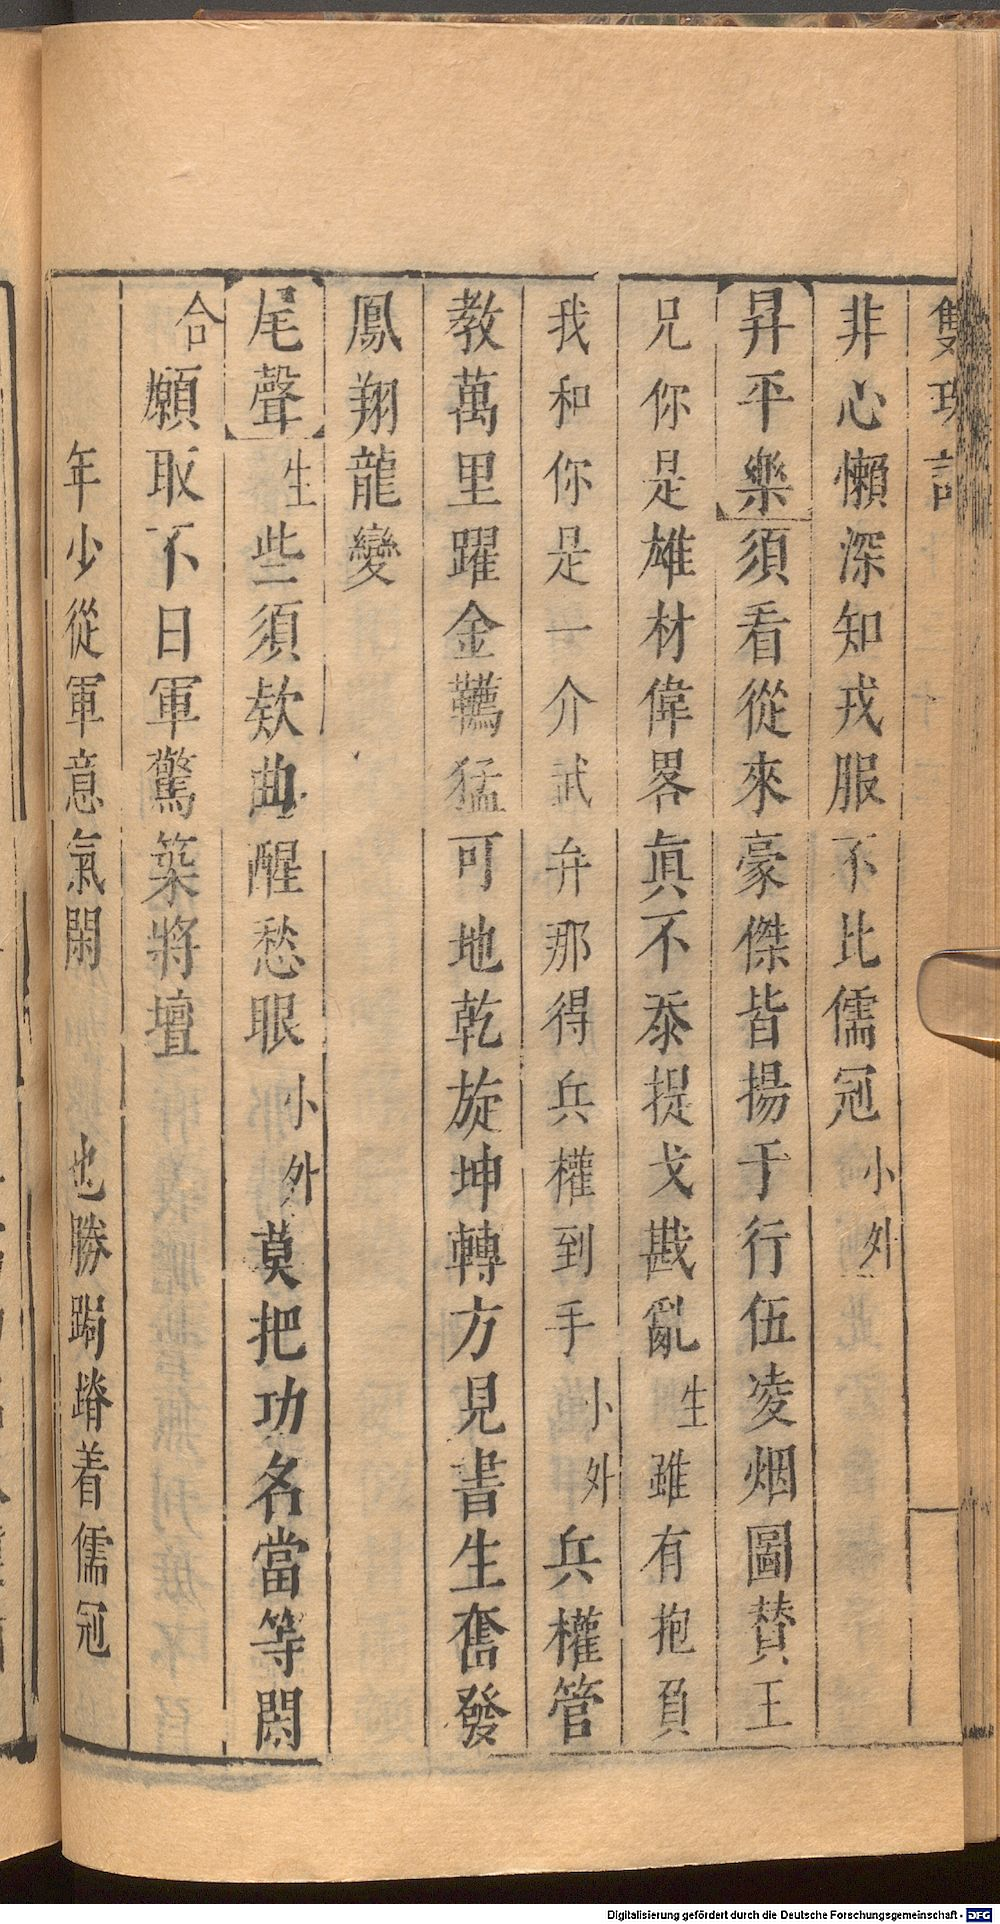 雙珠記
非心懶深知戎服不比儒冠小外
昇平樂須看從來豪傑皆揚于行伍凌烟圖贊王
兄你是雄材偉畧眞不忝提戈戡亂生雖有抱負
我和你是一介武弁那得兵權到手小外兵權管
教萬里躍金韉猛可地乾旋坤轉方見書生奮發
鳳翔龍變
尾聲生些須欸曲醒愁眼小外莫把功名當等閑
合願取不日軍驚築將壇
年少從軍意氣閑 也勝跼蹐着儒冠
Digitalisierung gefördert durch die Deutsche Forschungsgemeinschaft - DFG